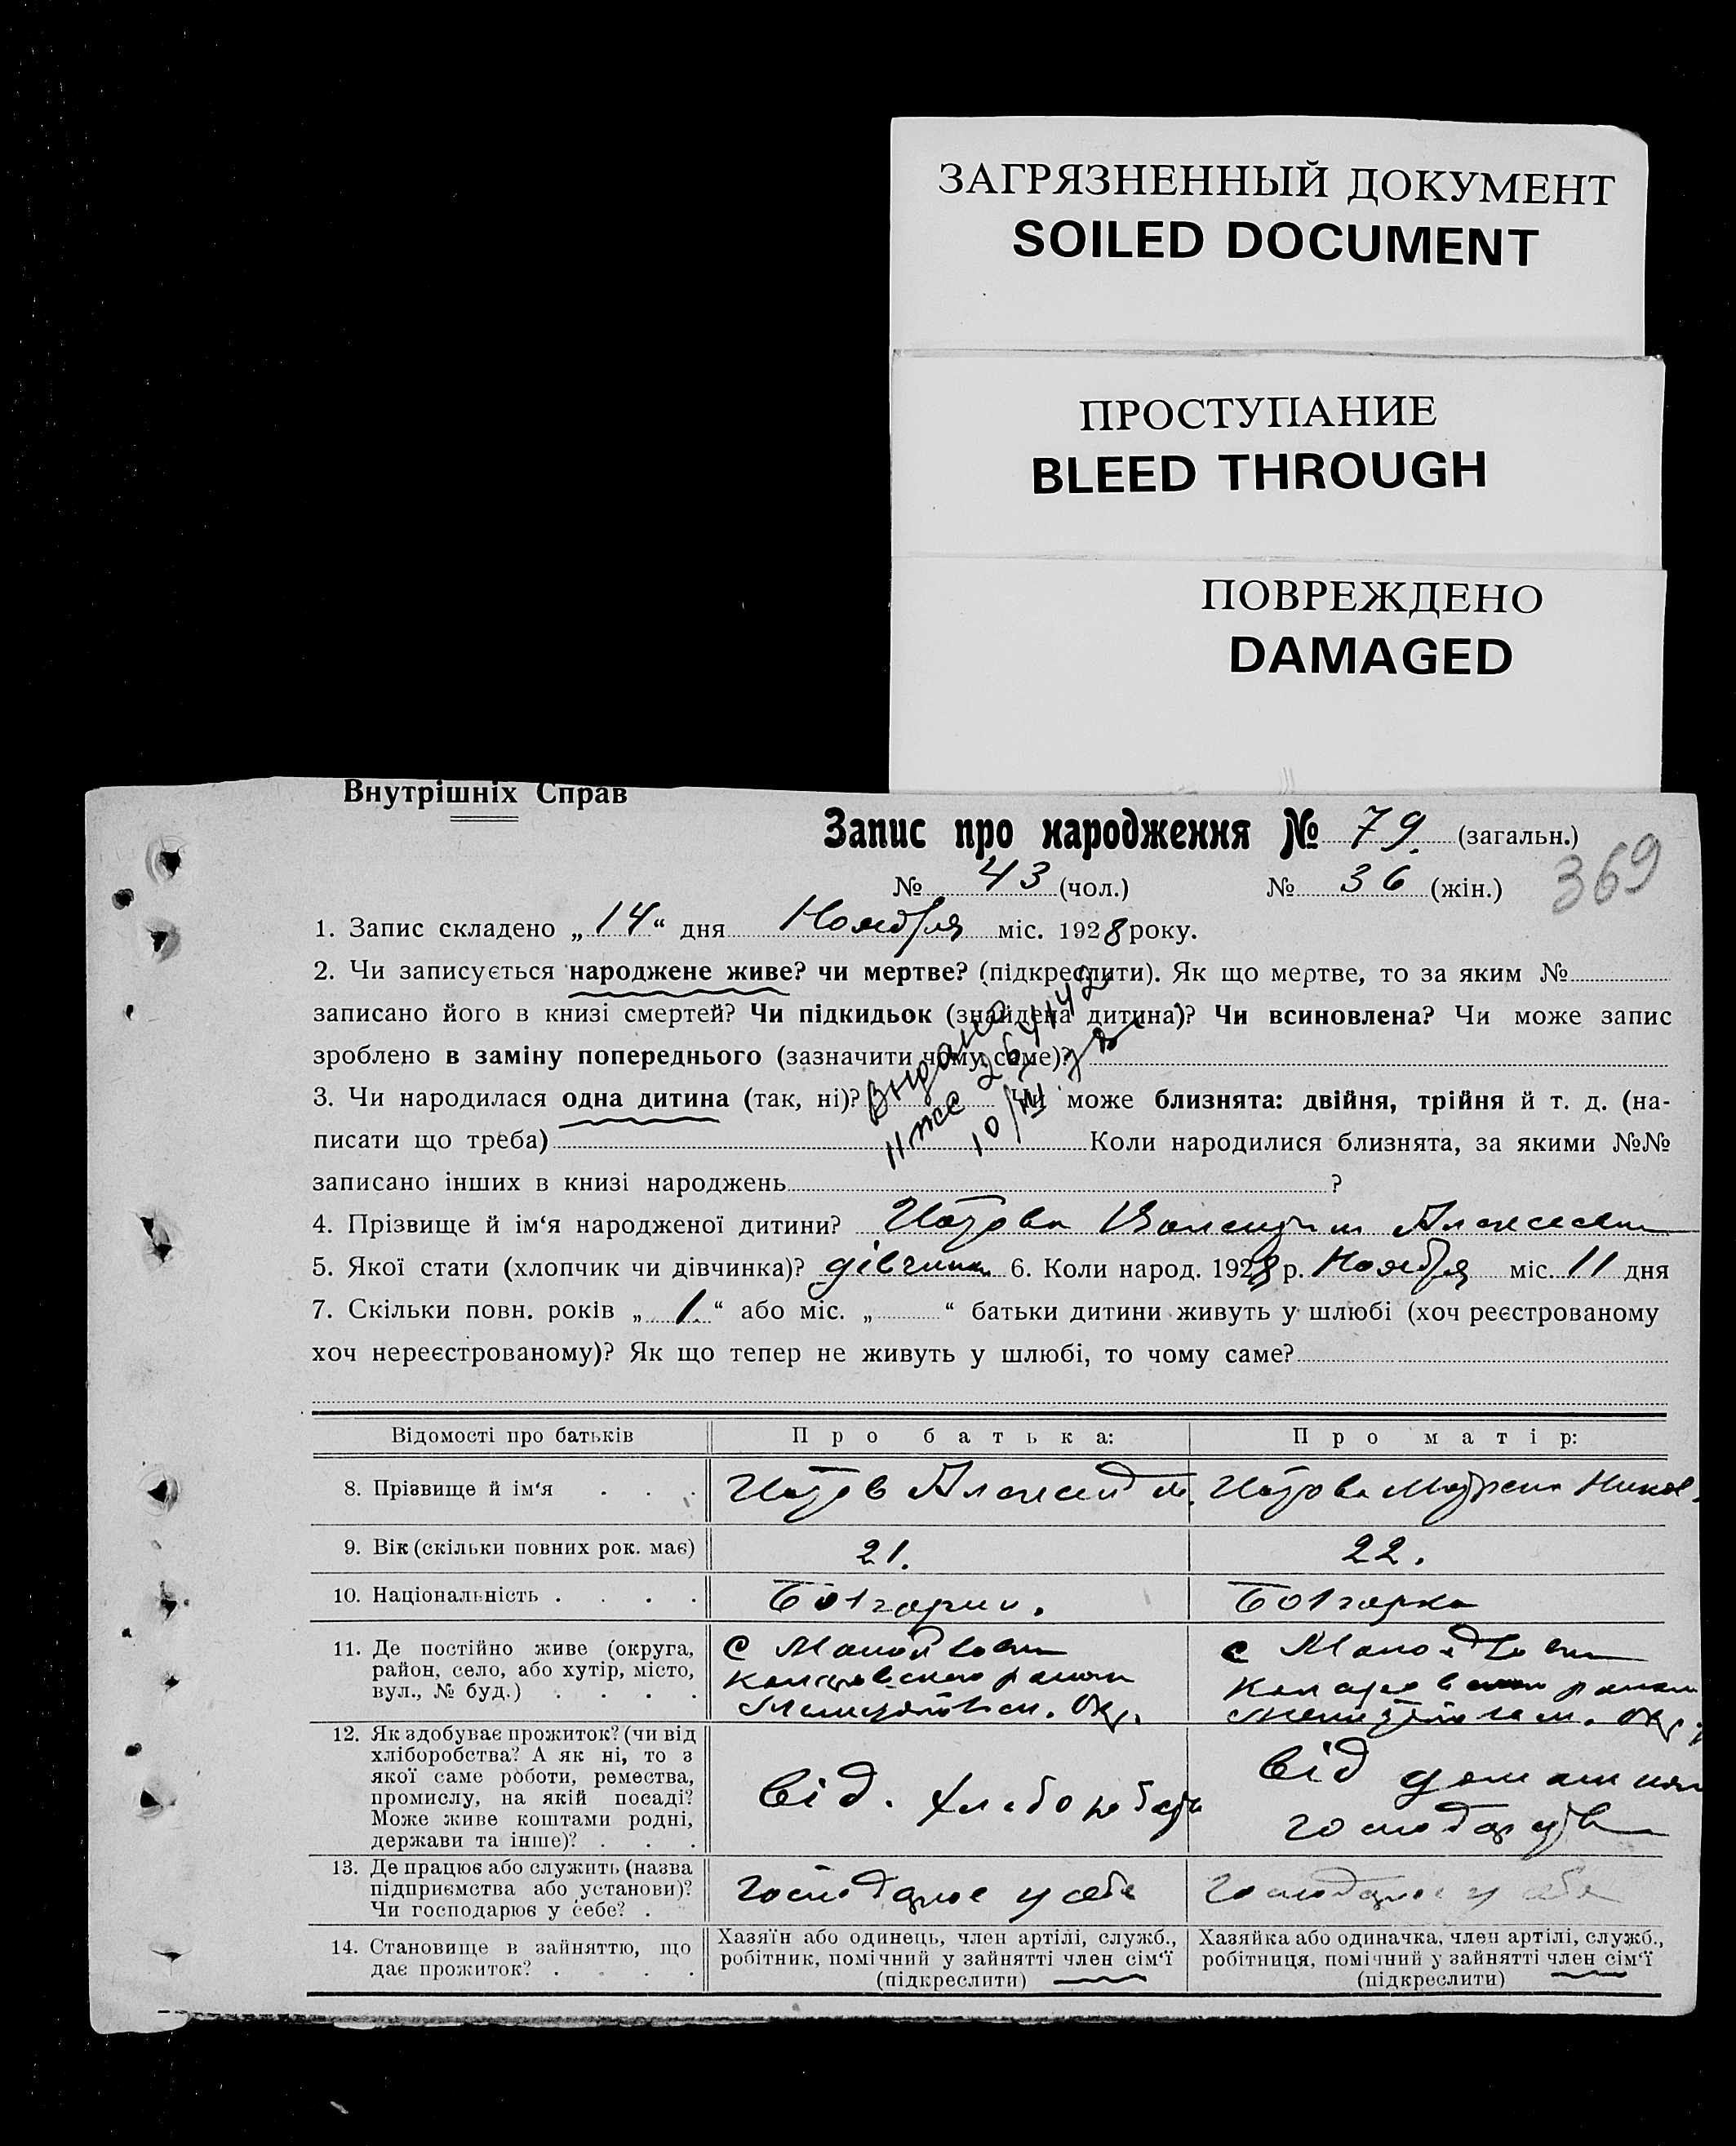 ЗАГРЯЗНЕННЫЙ ДОКУМЕНТ
SOILED DOCUMENT
ПРОСТУПАНИЕ
BLEED THROUGH
ПОВРЕЖДЕНО
DAMAGED
Внутрішніх Справ
Запис про народження № 79. (загальн.)
369
№ 43 (чол.) № 36 (жін.)
1. Запис складено „14“ дня Ноября міс. 1928 року.
2. Чи записується народжене живе? чи мертве? (підкреслити). Як що мертве, то за яким №
записано його в книзі смертей? Чи підкидьок (знайдена дитина)? Чи всиновлена? Чи може запис
зроблено в заміну попереднього (зазначити чому саме)?
3. Чи народилася одна дитина (так, ні)? Чи може близнята: двійня, трійня й т. д. (на-
писати що треба) Коли народилися близнята, за якими №№
записано інших в книзі народжень ?
4. Прізвище й ім‘я народженої дитини?
5. Якої стати (хлопчик чи дівчинка)? дівчинка 6. Коли народ. 1928 р. Ноября міс. 11 дня
7. Скільки повн. років „1.“ або міс. „ “ батьки дитини живуть у шлюбі (хоч реєстрованому
хоч нереєстрованому)? Як що тепер не живуть у шлюбі, то чому саме?
Відомості про батьків Про батька: Про матір:
8. Прізвище й ім‘я
9. Вік (скільки повних рок. має) 21. 22.
10. Національність . . . . Болгарин. Болгарка
11. Де постійно живе (округа,
район, село, або хутір, місто,
вул., № буд.) . . . .
12. Як здобуває прожиток? (чи від
хліборобства? А як ні, то з
якої саме роботи, ремества,
промислу, на якій посаді?
Може живе коштами родні,
держави та інше)? . . .
від. хліборобств
від домашньо
господарств
13. Де працює або служить (назва
підприємства або установи)?
Чи господарює у себе? .
господарює у себе господарює у себе
14. Становище в зайняттю, що
дає прожиток? . . . .
Хазяїн або одинець, член артілі, служб.,
робітник, помічний у зайнятті член сім‘ї
(підкреслити)
Хазяйка або одиначка, член артілі, служб.,
робітниця, помічний у зайнятті член сім‘ї
(підкреслити)